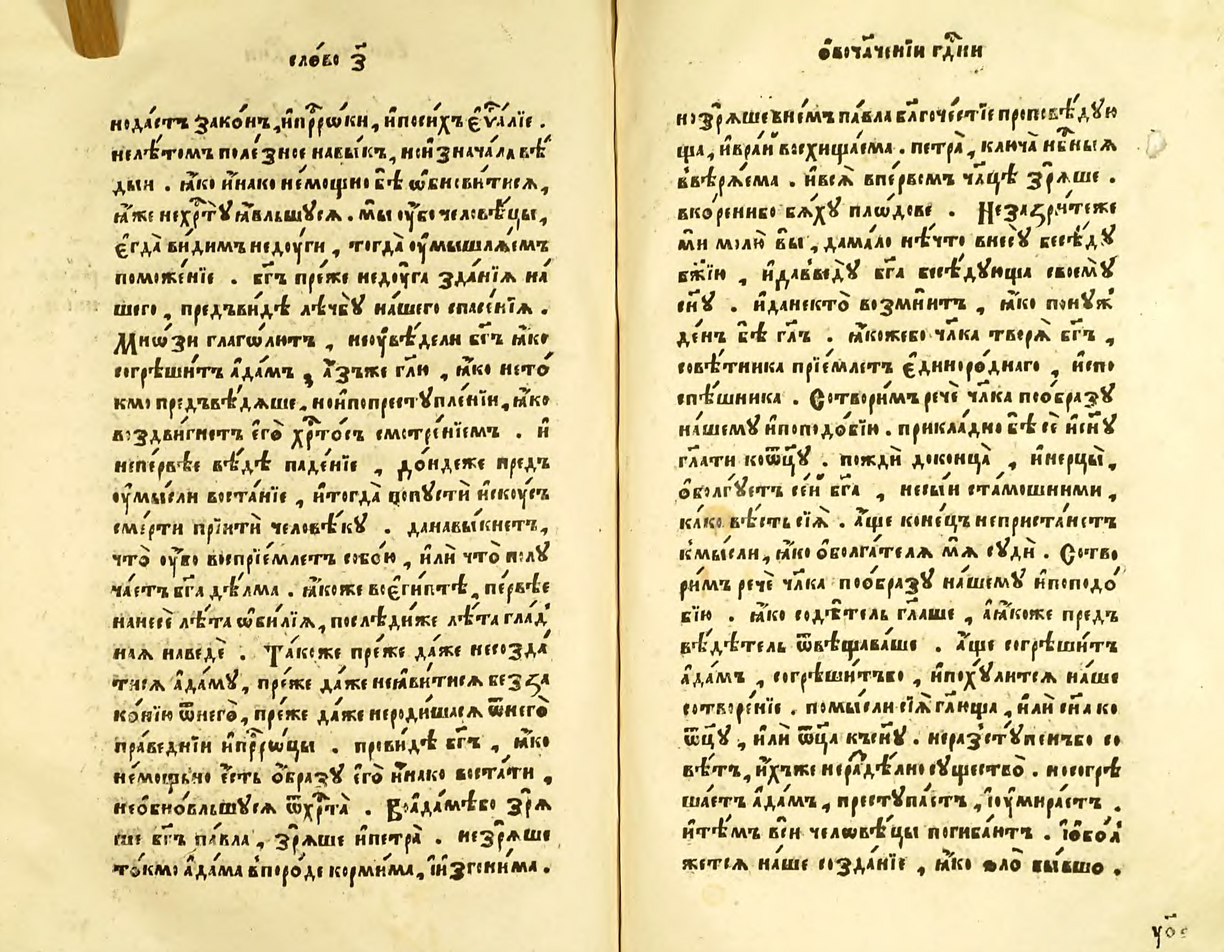 сло́во з҃
нода́стъ зако́нъ, и҆прⷪ҇рѡки, и҆посихъ є҆ѵⷢ҇а́лїе.
нелѣ́томъ поле́зное навы́къ, ноизнача́ла вѣ́
дыи. ꙗ҆́ко и҆на́ко немо́щно бѣ̀ ѡ҆бнови́тисѧ,
ꙗ҆́же нехрⷭ҇тꙋ̀ ꙗ҆́вльшꙋсѧ. мы̀ оу҆́бо человѣ́цы,
є҆гда̀ ви́димъ недꙋ́ги, тогда̀ оу҆мышлѧ́емъ
поможе́нїе. бг҃ъ пре́же недꙋ́га зда́нїѧ на́
шего, предъви́дѣ лѣ́чбꙋ на́шего спасе́нїѧ.
Мно́ѕи глаго́лютъ, неоу҆вѣ́дѣли бг҃ъ ꙗ҆́ко
согрѣши́тъ а҆да́мъ, а҆́зъже гл҃ю, ꙗ҆́ко нето́
кмо предъвѣ́дѧше, нои҆попрестꙋпле́нїи, ꙗ҆́ко
воздви́гнетъ є҆го̀ хрⷭ҇то́съ смотре́нїемъ. и҆
непе́рвѣе вѣ́дѣ паде́нїе, до́ндеже предъ
оу҆мы́сли воста́нїе, и҆тогда̀ попꙋстѝ и҆скꙋ́съ
сме́рти прїитѝ человѣ́кꙋ. данавы́кнетъ,
что̀ оу҆́бо воспрїе́млетъ собо́ю, и҆лѝ что̀ полꙋ
ча́етъ бг҃а дѣ́лма. ꙗ҆́коже воє҆гѵ́птѣ, пе́рвѣе
нанесѐ лѣ́та ѡ҆би́лїѧ, послѣди́же лѣ́та гла́д
наѧ наведѐ. Та́коже пре́же да́же несозда́
тисѧ а҆да́мꙋ, пре́же да́же неꙗ҆ви́тисѧ безза
ко́нїю ѿнего̀, пре́же да́же нероди́шасѧ ѿнего̀
пра́веднїи и҆прⷪ҇рѡцы. прови́дѣ бг҃ъ, ꙗ҆́ко
немо́щьно є҆́сть о҆́бразꙋ є҆го̀ и҆на́ко воста́ти,
необно́вльшꙋсѧ ѿхрⷭ҇та̀. Воа҆да́мѣбо зрѧ́
ше бг҃ъ па́вла, зрѧ́ше и҆петра̀. незрѧ́ше
то́кмо а҆да́ма впоро́дѣ корми́ма, и҆и҆згони́ма.
ѡ҆бочл҃че́нїи гдⷭ҇ни
нозрѧ́ше внемъ па́вла бл҃гоче́стїе проповѣ́дꙋю
ща, и҆вра́й восхища́ема. петра̀, ключа̀ нбⷭ҇ныѧ
ввѣрѧ́ема. и҆всѧ̀ впе́рвомъ чл҃цѣ зрѧ́ше.
вко́рени бо бѧ́хꙋ пло́дове. Незазри́теже
мѝ молю̀ вы̀, дама́ло нѣ́что внесꙋ̀ бесѣ́дꙋ
бж҃їю, и҆давведꙋ̀ бг҃а бесѣ́дꙋюща своемꙋ̀
сн҃ꙋ. и҆данекто̀ возмни́тъ, ꙗ҆́ко понꙋж
де́нъ бѣ̀ гл҃ъ. ꙗ҆́кожебо чл҃ка творѧ̀ бг҃ъ,
совѣ́тника прїе́млетъ є҆диноро́днаго, и҆спо
спѣ́шника. Сотвори́мъ речѐ чл҃ка поо́бразꙋ
на́шемꙋ и҆поподо́бїю. прикла́дно бѣ̀ сѐ и҆сн҃ꙋ
гл҃ати коѿц҃ꙋ. пождѝ доконца̀, и҆нерцы̀,
о҆болгꙋ́етъ се́й бг҃а, несы́и стамошними,
ка́ко вѣ́сть сїѧ̀. а҆́ще коне́цъ неприста́нетъ
кмы́сли, ꙗ҆́ко о҆болга́телѧ мѧ̀ сꙋдѝ. Сотво
ри́мъ речѐ чл҃ка поо́бразꙋ на́шемꙋ и҆поподо́
бїю. ꙗ҆́ко содѣ́тель гл҃аше, а҆ꙗ҆́коже предъ
вѣ́дѣтель ѿвѣщава́ше. а҆́ще согрѣши́тъ
а҆да́мъ, согрѣши́тъбо, и҆похꙋ́литсѧ на́ше
сотворе́нїе. помы́сли сїѧ̀ гл҃юща, и҆лѝ сн҃а ко
ѿц҃ꙋ, и҆лѝ ѿц҃а късн҃ꙋ. неразстꙋ́пенъбо со
вѣ́тъ, и҆́хъже неразⷣѣлно сꙋщество̀. носогрѣ
ша́етъ а҆да́мъ, престꙋпа́етъ, и҆оу҆мира́етъ.
и҆тѣ́мъ всѝ человѣ́цы погиба́ютъ. и҆обол
же́тсѧ на́ше созда́нїе, ꙗ҆́ко ѕло̀ бы́вшо.